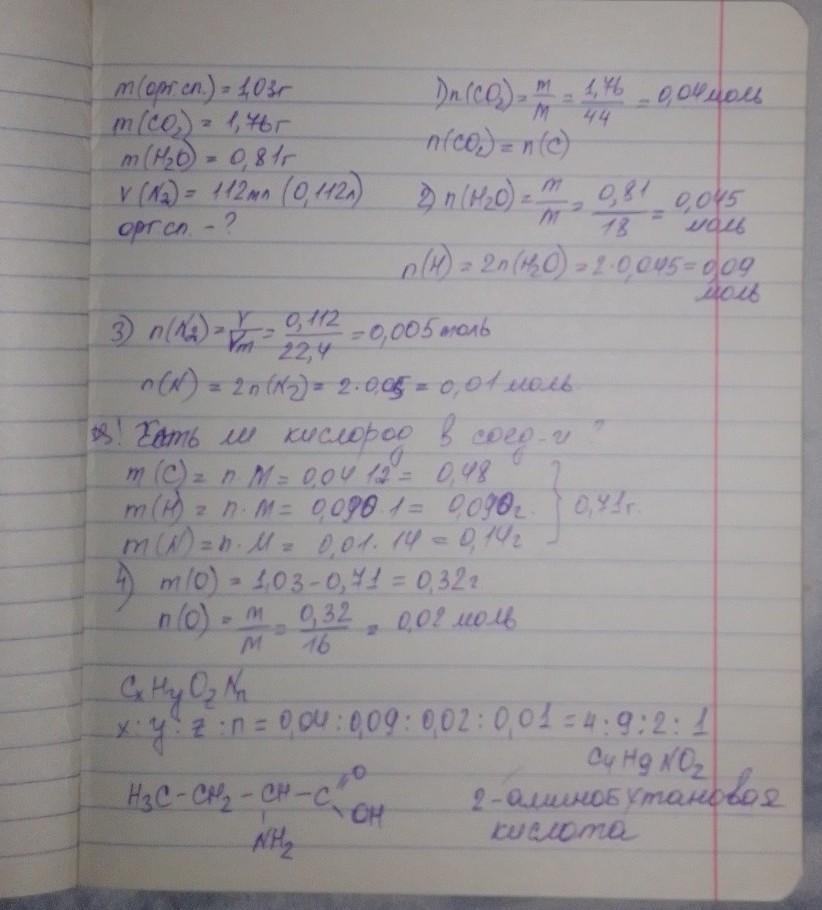 m(орг.сп.) = 1,03г
m(CO₂) = 1,76г
m(H₂O) = 0,81г
V(N₂) = 112мл (0,112л)
орг сп. - ?
1) n(CO₂) = m/M = 1,76/44 = 0,04 моль
n(CO₂) = n(C)
2) n(H₂O) = m/M = 0,81/18 = 0,045 моль
n(H) = 2n(H₂O) = 2·0,045 = 0,09 моль
3) n(N₂) = V/Vm = 0,112/22,4 = 0,005 моль
n(N) = 2n(N₂) = 2·0,05 = 0,01 моль
! Есть ли кислород в соед-и ?
m(C) = n·M = 0,04 12 = 0,48
m(H) = n·M = 0,090·1 = 0,090г.
m(N) = n·M = 0,01·14 = 0,14г
} 0,71г.
4) m(O) = 1,03 - 0,71 = 0,32г
n(O) = m/M = 0,32/16 = 0,02 моль
CxHyOzNn
x : y : z : n = 0,04 : 0,09 : 0,02 : 0,01 = 4 : 9 : 2 : 1
C4H9NO2
H₃C - CH₂ - CH - C
O
OH
NH₂
2-аминобутановая
кислота